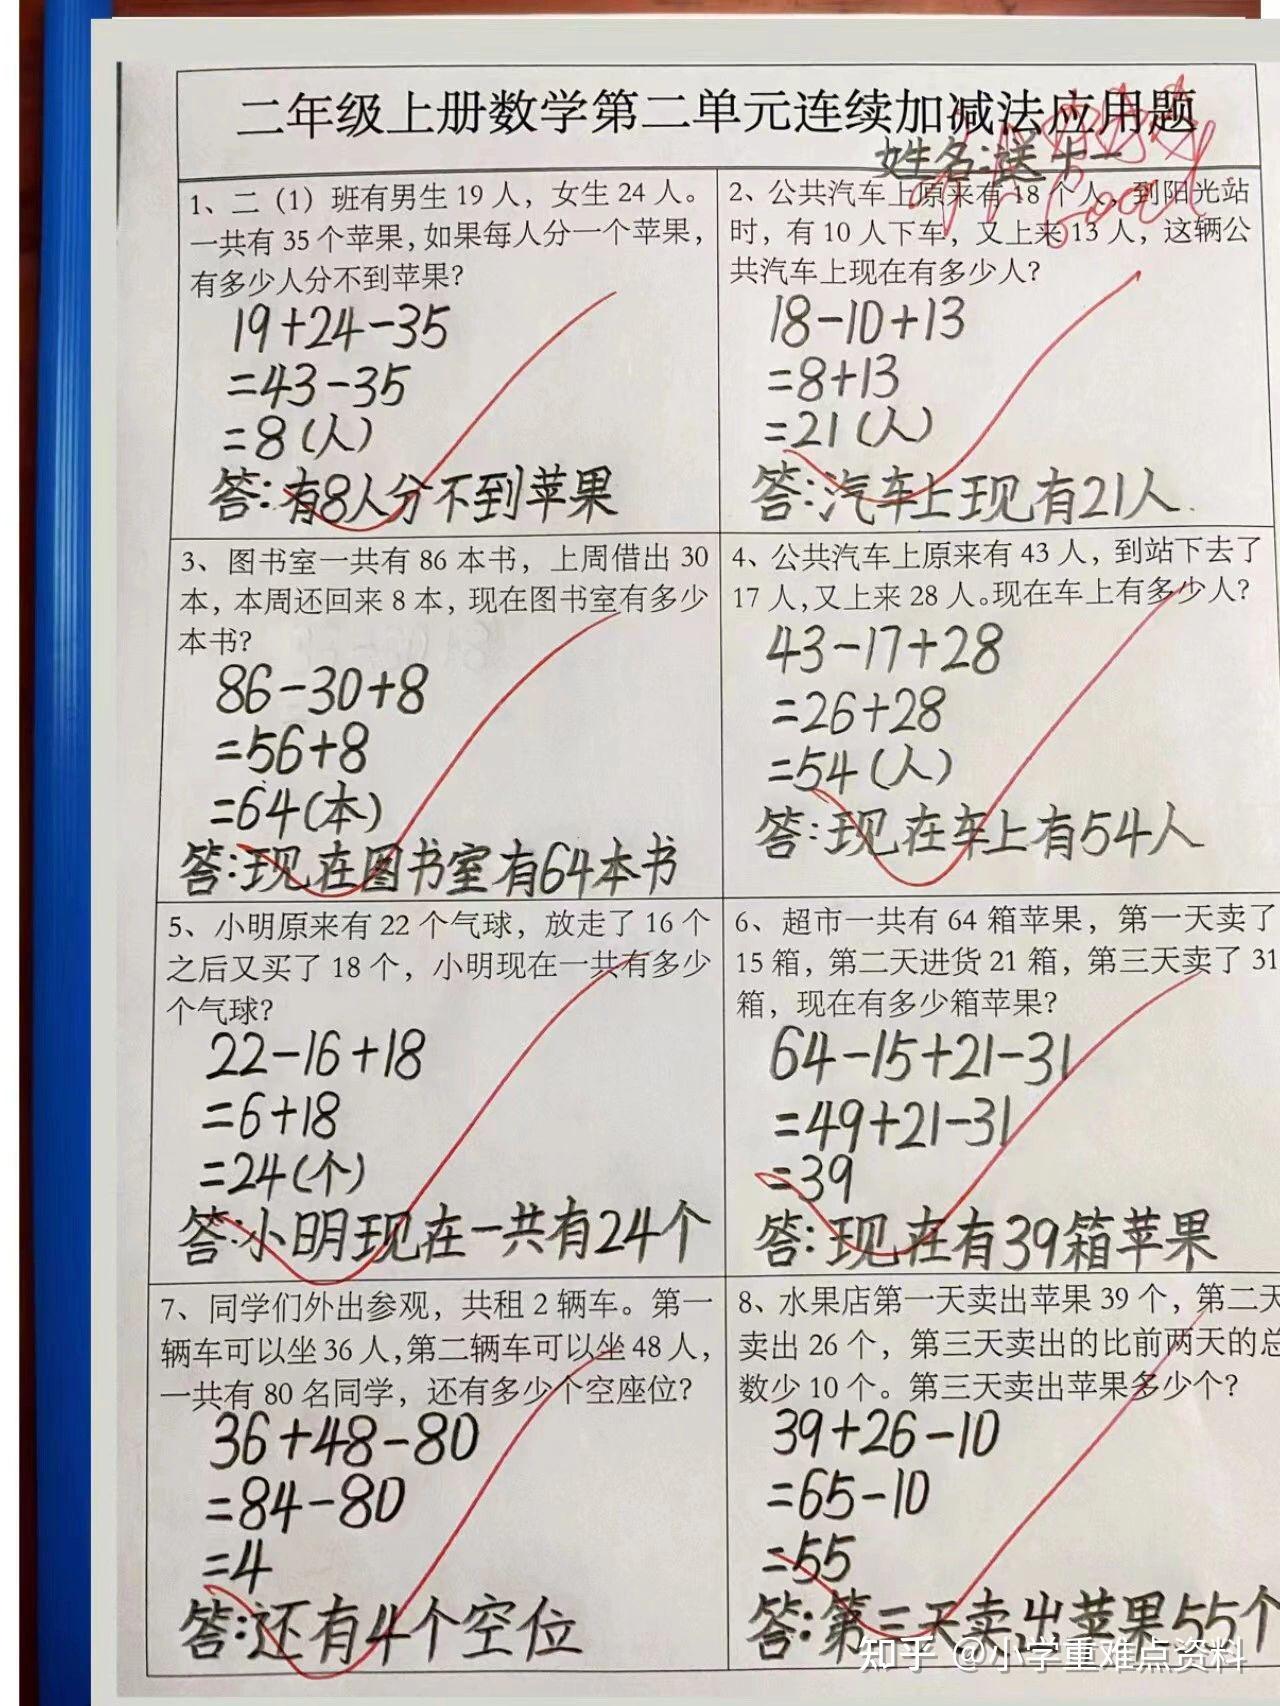 二年级上册数学第二单元连续加减法应用题
姓名:送十一
Good
1、二（1）班有男生 19 人，女生 24 人。
一共有 35 个苹果，如果每人分一个苹果，
有多少人分不到苹果？
19+24-35
=43-35
=8(人)
答:有8人分不到苹果
2、公共汽车上原来有 18 个人，到阳光站
时，有 10 人下车，又上来 13 人，这辆公
共汽车上现在有多少人？
18-10+13
=8+13
=21(人)
答:汽车上现有21人.
3、图书室一共有 86 本书，上周借出 30
本，本周还回来 8 本，现在图书室有多少
本书？
86-30+8
=56+8
=64(本)
答:现在图书室有64本书
4、公共汽车上原来有 43 人，到站下去了
17 人，又上来 28 人。现在车上有多少人？
43-17+28
=26+28
=54(人)
答:现在车上有54人
5、小明原来有 22 个气球，放走了 16 个
之后又买了 18 个，小明现在一共有多少
个气球？
22-16+18
=6+18
=24(个)
答:小明现在一共有24个
6、超市一共有 64 箱苹果，第一天卖了
15 箱，第二天进货 21 箱，第三天卖了 31
箱，现在有多少箱苹果？
64-15+21-31
=49+21-31
=39
答:现在有39箱苹果
7、同学们外出参观，共租 2 辆车。第一
辆车可以坐 36 人，第二辆车可以坐 48 人，
一共有 80 名同学，还有多少个空座位？
36+48-80
=84-80
=4
答:还有4个空位
8、水果店第一天卖出苹果 39 个，第二天
卖出 26 个，第三天卖出的比前两天的总
数少 10 个。第三天卖出苹果多少个？
39+26-10
=65-10
=55
答:第三天卖出苹果55个
知乎 @小学重难点资料